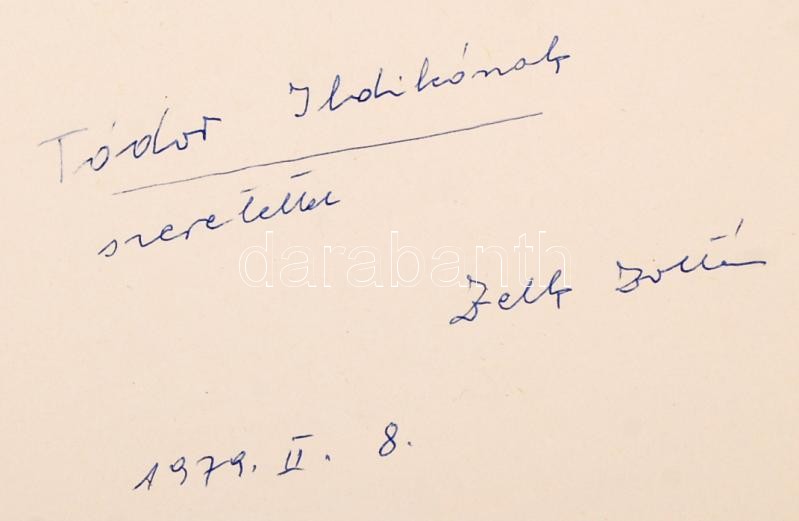 Tódor Ildikónak
szeretettel
darabanth
Zelk Zoltán
1979. II. 8.